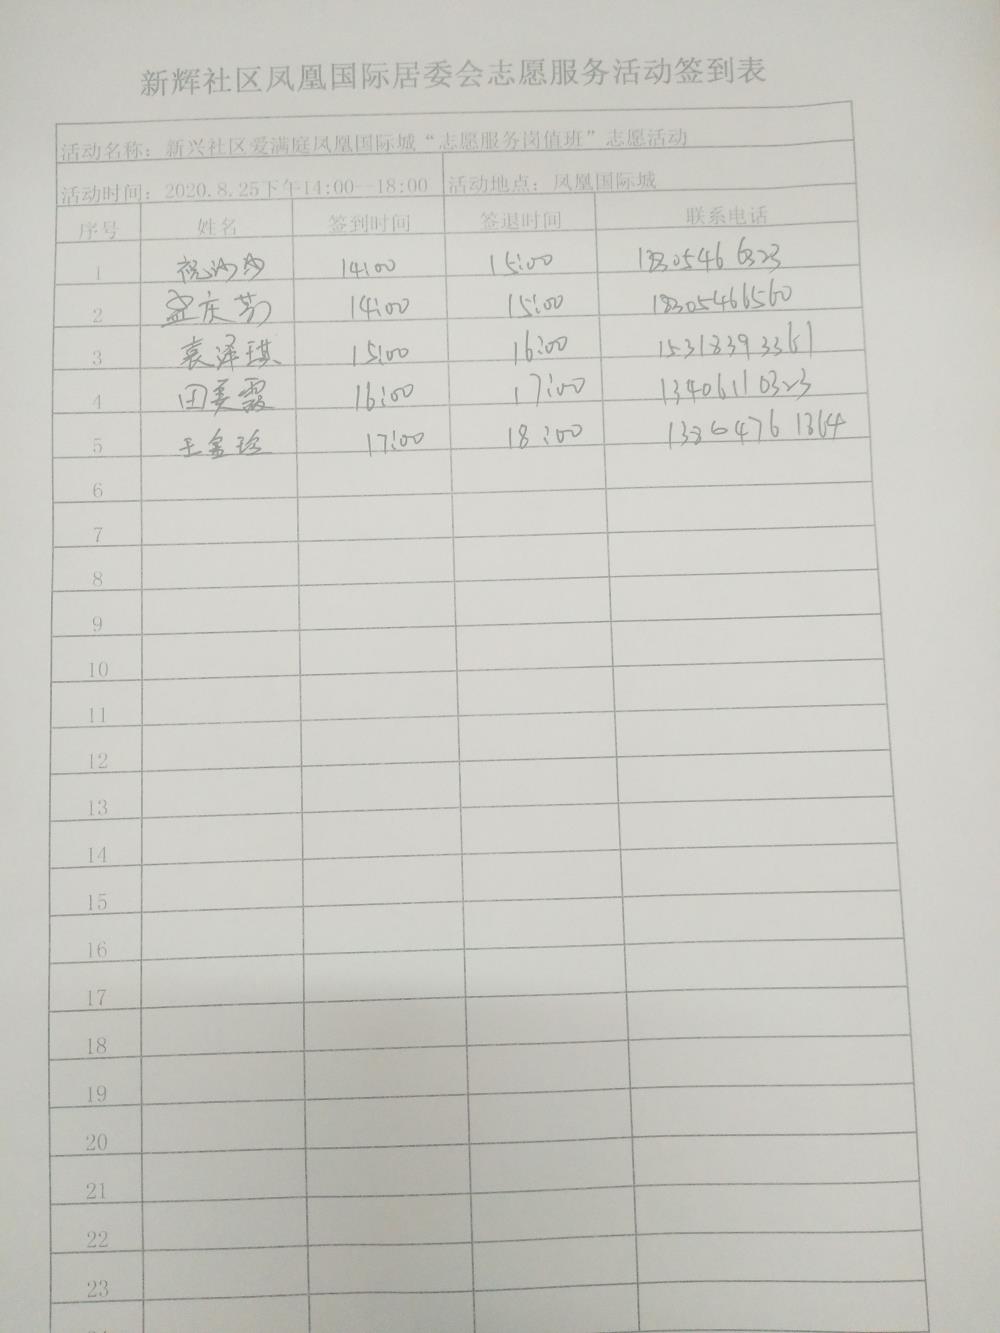 新辉社区凤凰国际居委会志愿服务活动签到表
活动名称：新兴社区爱满庭凤凰国际城“志愿服务岗值班”志愿活动
活动时间：2020.8.25下午14:00--18:00 活动地点：凤凰国际城
序号 姓名 签到时间 签退时间 联系电话
1 祝沙沙 14:00 15:00
2 孟庆芳 14:00 15:00 18305466560
3 袁泽琪 15:00 16:00 15318393361
4 田美霞 16:00 17:00 13406110323
5 王金珍 17:00 18:00
6
7
8
9
10
11
12
13
14
15
16
17
18
19
20
21
22
23